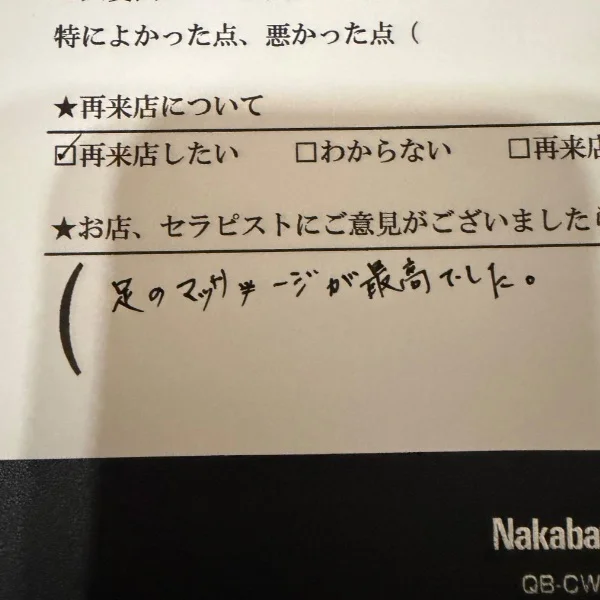 特によかった点、悪かった点（
★再来店について
☑再来店したい □わからない □再来店
★お店、セラピストにご意見がございましたら
（足のマッサージが最高でした。
Nakaba
QB-CW